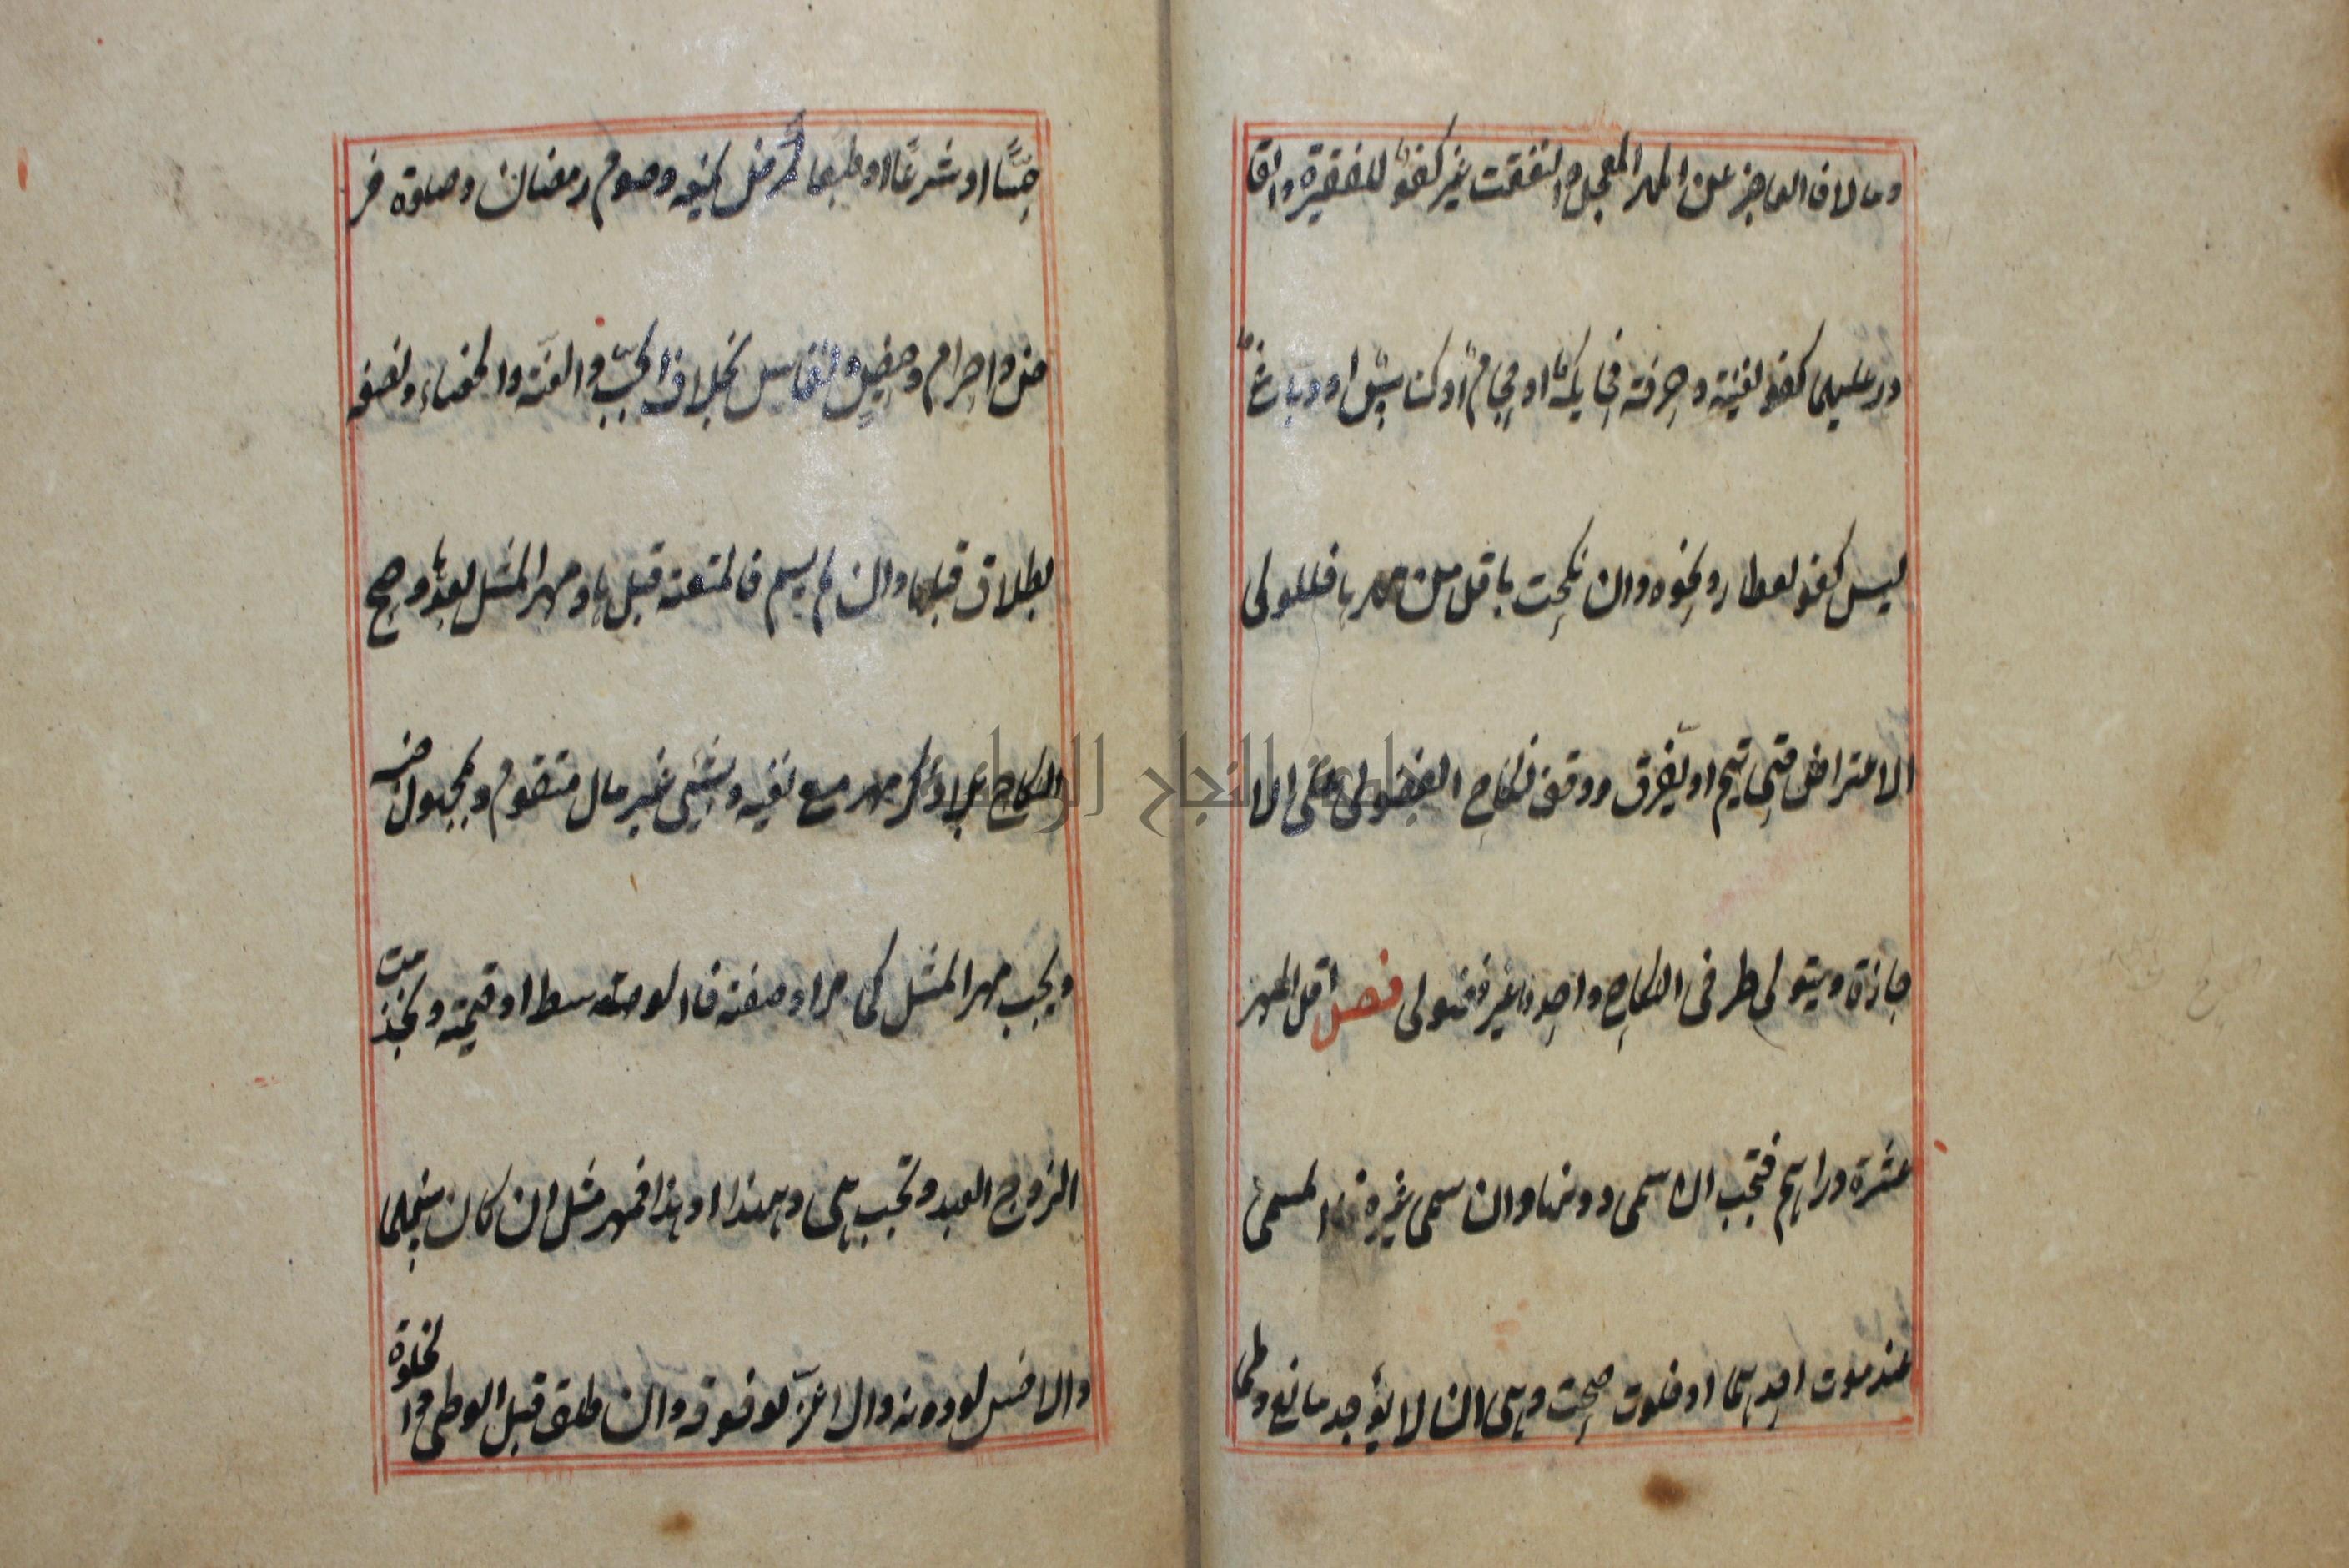 ومالا فالعاجز عن المهر المعجل والنفقة غير كفؤ للفقيرة والقا
در عليهما كفؤ لغنية وحرفة فحايك او حجام او كناس او دباغ
ليس كفؤ لعطار ونحوه وان نكحت باقل من مهرها فللولى
الاعتراض حتى يتم او يفرق ووقف نكاح الفضولى على الا
جازة ويتولى طرفى النكاح واحد غير فضولى فصل اقل المهر
عشرة دراهم فتجب ان سمى دونها وان سمى غيره فالمسمى
عند موت احدهما او خلوت صحت وهى ان لا يوجد مانع وطى
حسا او شرعا او طبعا كمرض يمنعه وصوم رمضان وصلوة فر
ض واحرام وحيض ونفاس بخلاف الجب والعنة والخصاء ونصفه
بطلاق قبلها وان لم يسم فالمتعة قبلها ومهر المثل بعدها وصح
النكاح بلا ذكر مهر مع نفيه وبشئ غير مال متقوم وبمجهول جنسه
ويجب مهر المثل كما مر او صفته فالوسط او قيمته وبخدمت
الزوج العبد وتجب هى وبهذا او هذا فمهر مثل ان كان بينهما
والاخس لو دونه والاعز لو فوقه وان طلق قبل الوطى والخلوة
جامعة النجاح الوطنية